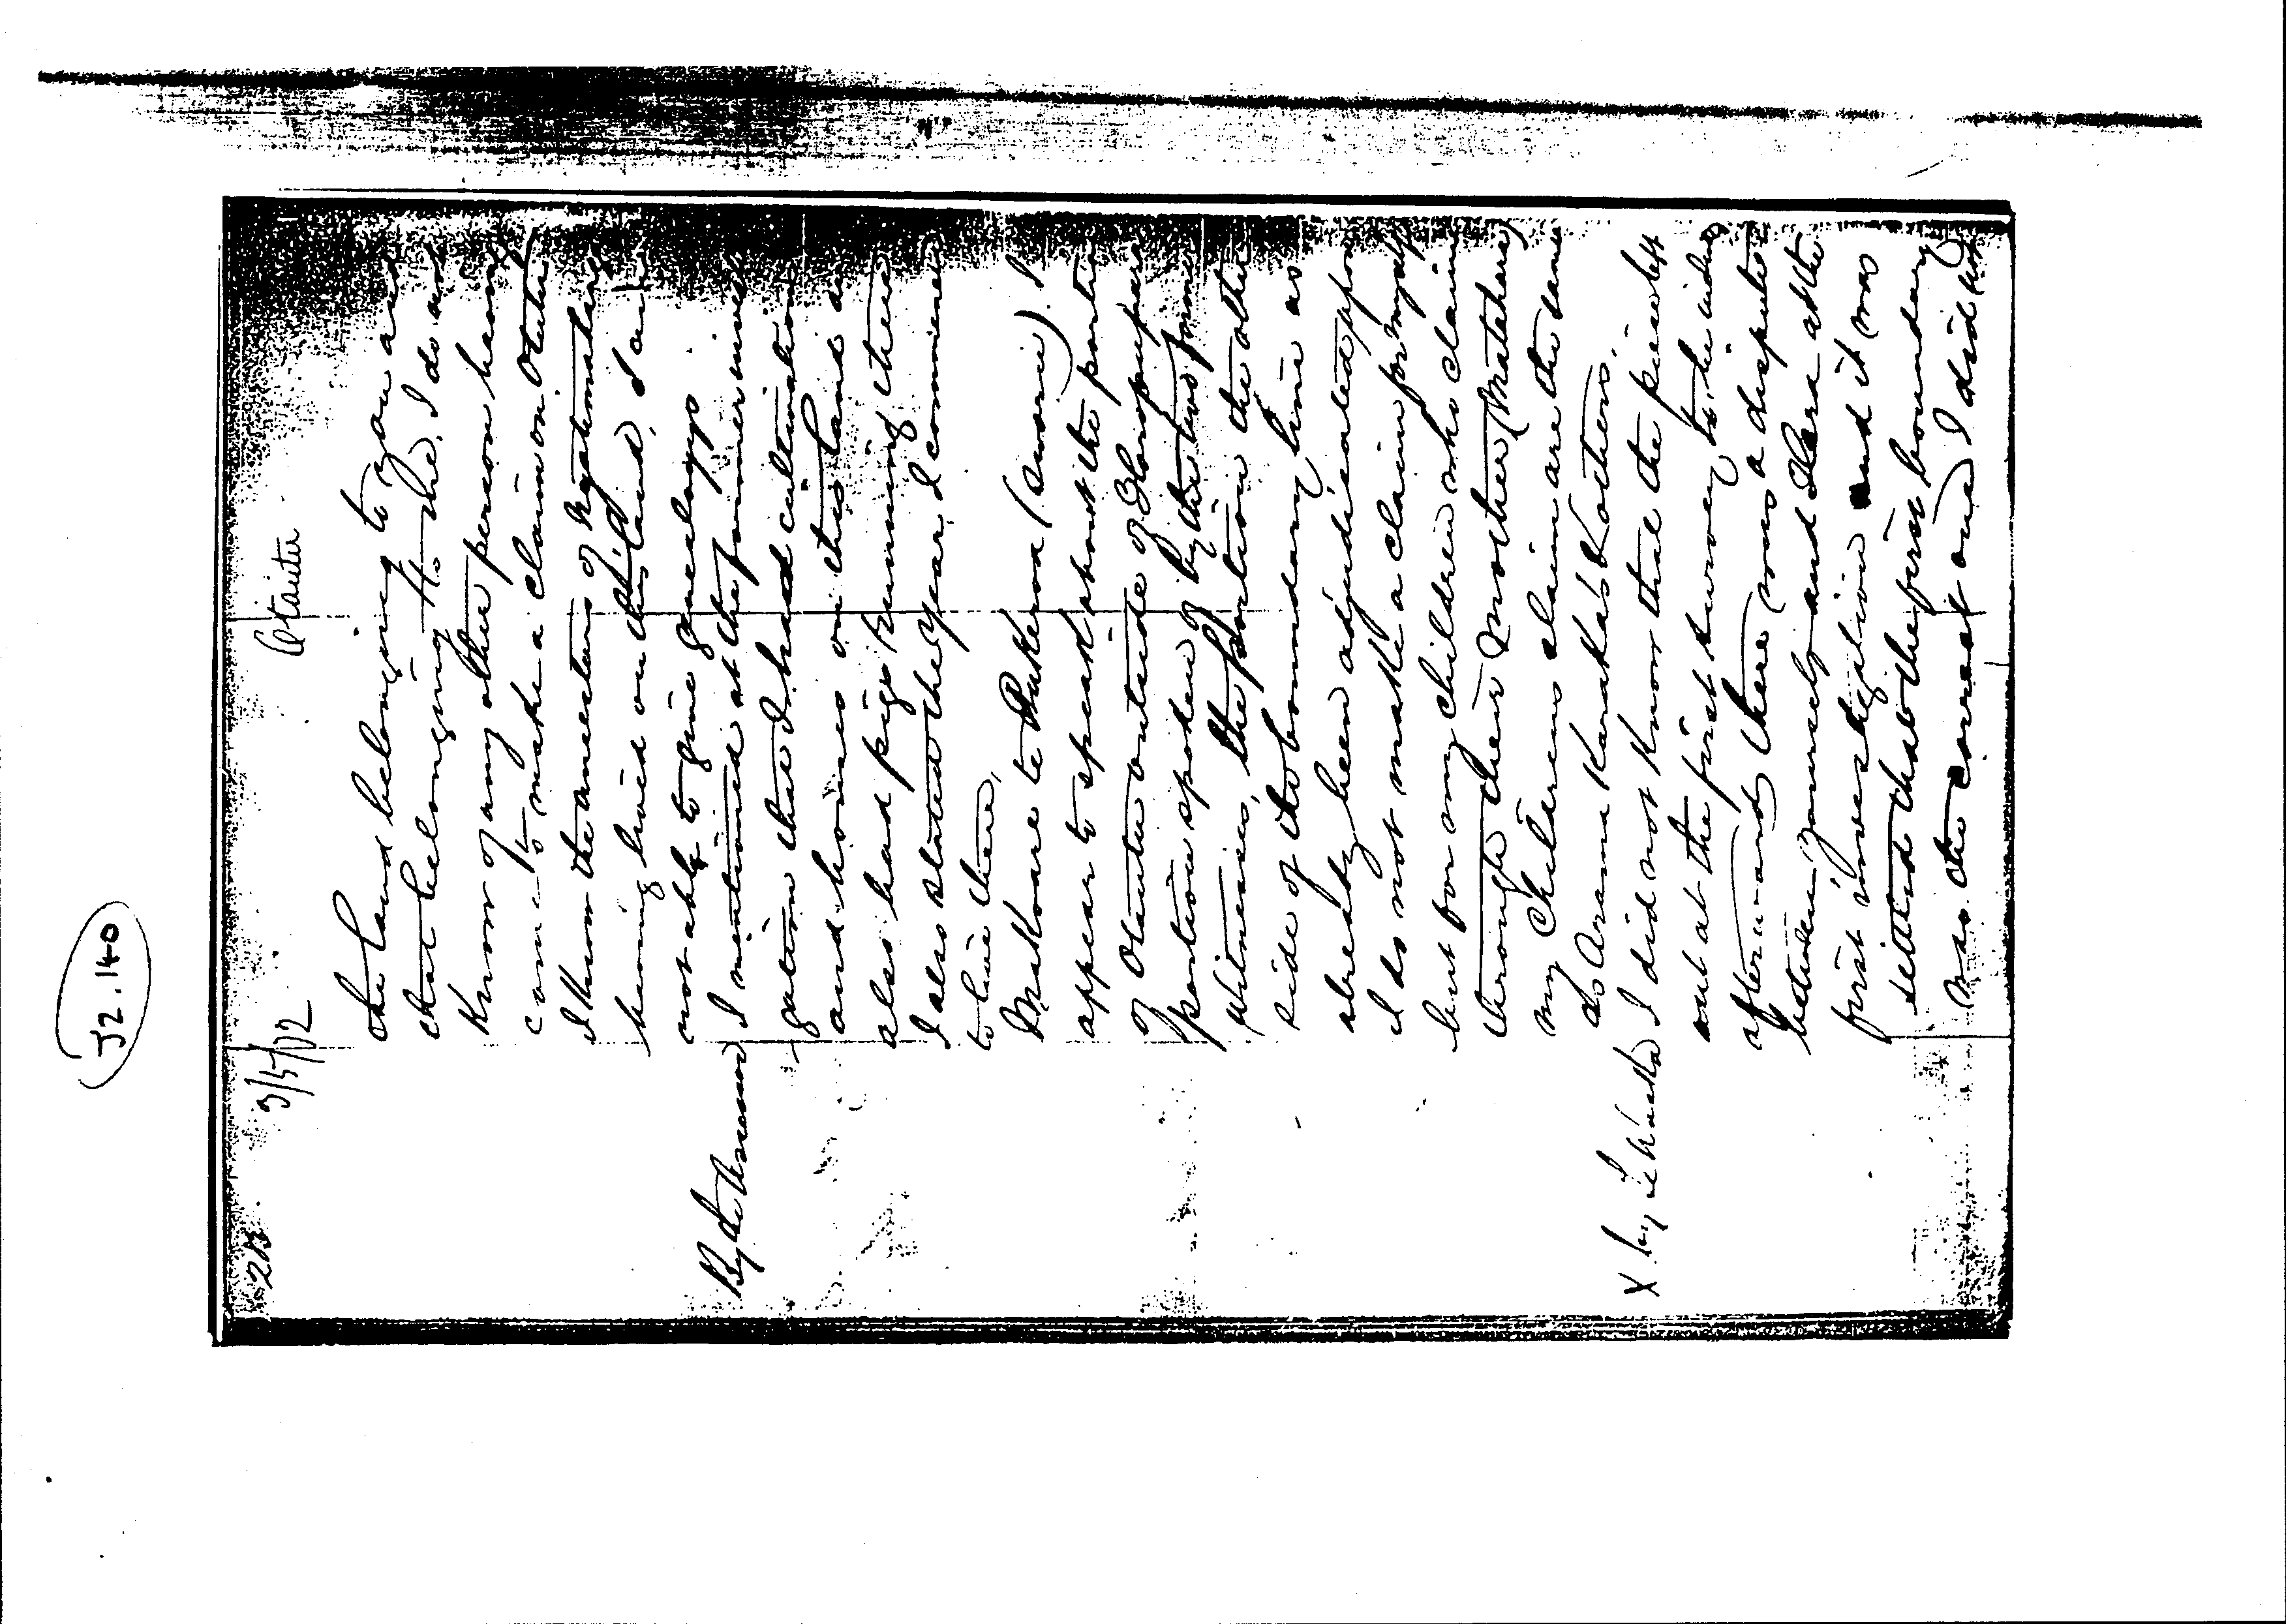 J2.140
2B
3/5/72
Otautu
the land belonging to you and
that belonging to me. I do not
know of any other person having
come to make a claim on Otautu
I know the ancestors of
having lived on this land. I am
not able to give genealogy
By the Assessor I mentioned at the former investi-
gation that I had cultivations
and houses on this land and
also had pigs running there
I also stated the year I commenced
to live there.
(sworn) I
appear to speak about the portion
of Otautu outside of
portion spoken of by the two former
witnesses, the portion the other
side of the boundary line as
already been adjudicated upon
I do not make a claim for myself
but for my children who claim
through their mother
my childrens claim are the same
as Arama Karaka's & others.
X by I did not know that the piece left
out at the first survey
afterwards there was a dispute
between yourself and at the
first investigation and it was
settled that the first boundary
was the correct one I did not